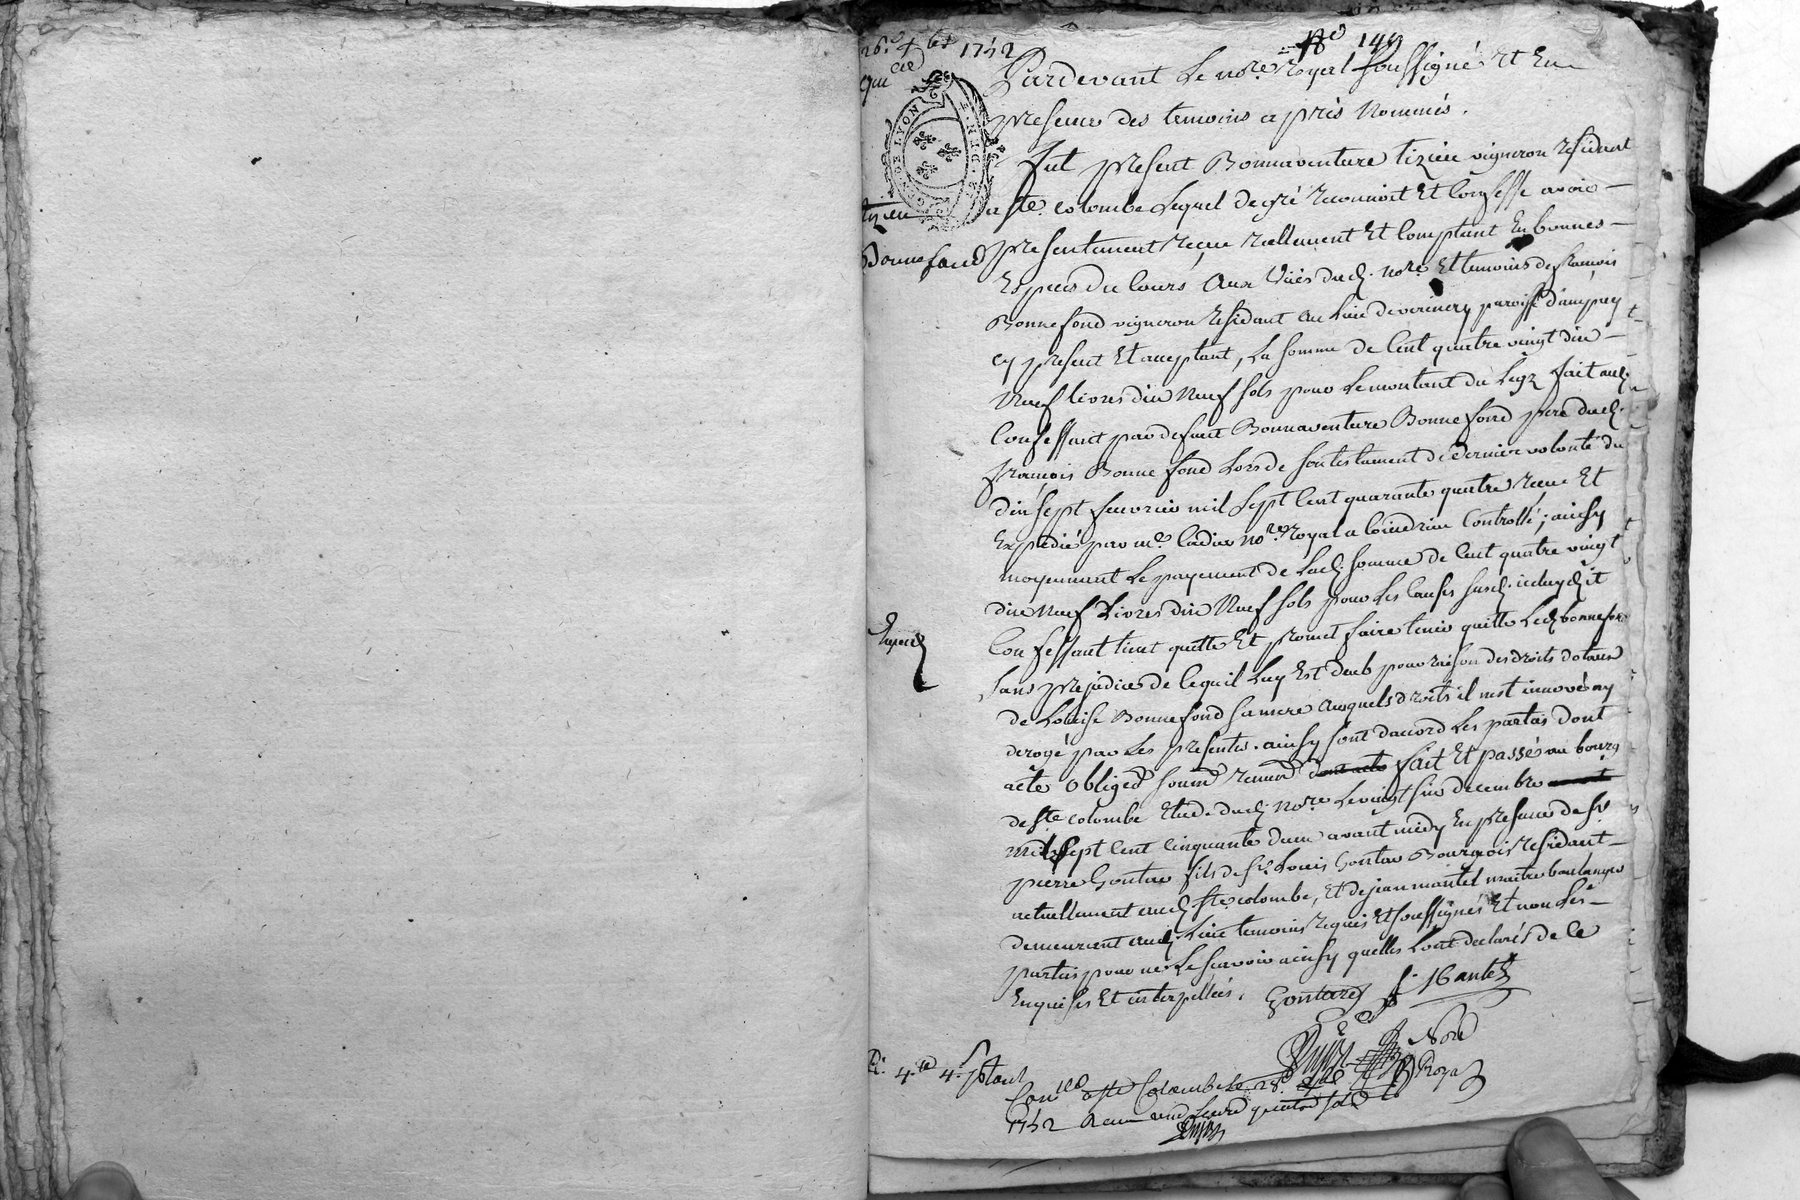 26e xbre 1752
No 149
Quce
GEN DE LYON
Tizieu
Bonnefond
Pardevant Le nore Royal soussigné Et En
presence des temoins cy près Nommés.
fut present Bonnaventure tizieu vigneron residant
a Ste. colombe Lequel de gré reconnoit Et Confesse avoir
presentement reçu réellement Et Comptant En bonnes
Especes du Cours Aux Vües dud. nore. Et temoins de francois
Bonnefond vigneron residant au Lieu de verenay paroisse d'ampuy
cy present Et acceptant, La somme de Cent quatre vingt dix
Neuf livres dix Neuf sols pour Le montant du Legz fait aud.
Confessant par defunt Bonnaventure Bonnefond pere dud.
françois Bonnefond Lors de son testament de dernière volonté du
dix sept fevrier mil sept Cent quarante quatre receu Et
Expedié par me. Cadier nore. Royal a Coindrieu Controllé; ainsy
moyennant Le payement de Lad. somme de Cent quatre vingt
dix Neuf Livres dix Neuf sols pour Les Causes susd. iceluy d. tt
Confessant tient quitte Et promet faire tenir quitte Led. bonnefond
sans prejudice de Ce quil Luy Est deub pour raison des droits dotaux
de Louise Bonnefond sa mere Ausquels droits il n'est innové ny
derogé par Les presentes. ainsy sont d'accord Les parties dont
acte obliged soumd renond dont acte fait Et passé au bourg
de Ste colombe Etude dud. Nore Le vingt six decembre
mil sept Cent Cinquante deux avant midy En presence de sr
pierre Gontard fils de sr. Louis Gontar Bourgeois residant
actuellement aud. Ste colombe, Et de jean mantel maitre boulanger
demeurant aud. Lieu temoins requis Et soussignés Et non Les
parties pour ne Le scavoir ainsy quelles L'ont declarés de Ce
Enquises Et interpellées.
Expedié
Gontard J. Mantel
Nore
Royal
R. 4 ... 4 s
Conlé a Ste Colombe Le 28e xbre
1752 Recu une Livre quatre sols